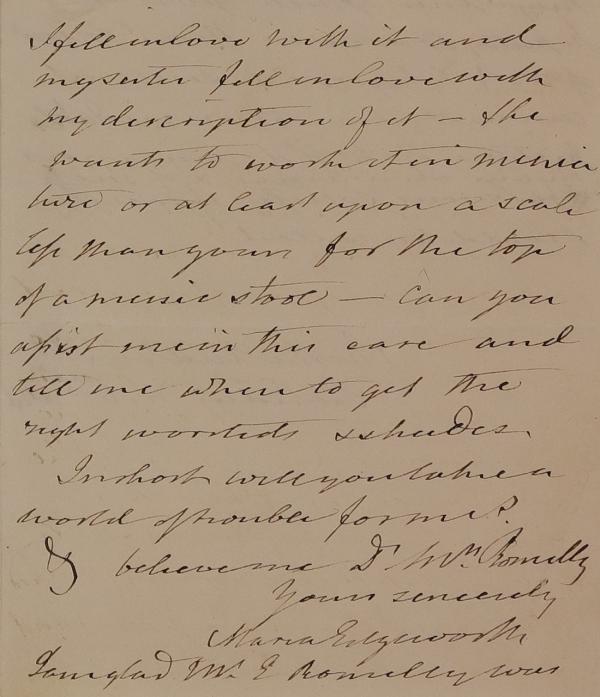 I fell in love with it and
my sister fell in love with
my description of it – She
wants to work it in minia
ture or at least upon a scale
less than yours for the top
of a music stool – Can you
assist me in this case and
tell me where to get the
right worsteds & shades.
In short will you take a
world of trouble for me?
& believe me Dr Mrs Romilly
Yours sincerely
Maria Edgeworth
I am glad Mr E Romilly was